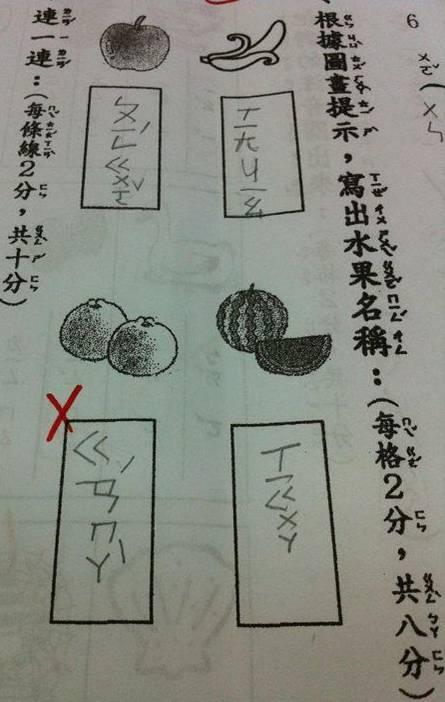 6
根據圖畫提示，寫出水果名稱：（每格2分，共八分）
ㄒㄧㄤ ㄐㄧㄠ
ㄆㄧㄥˊ ㄍㄨㄛˇ
ㄒㄧ ㄍㄨㄚ
連一連：（每條線2分，共十分）